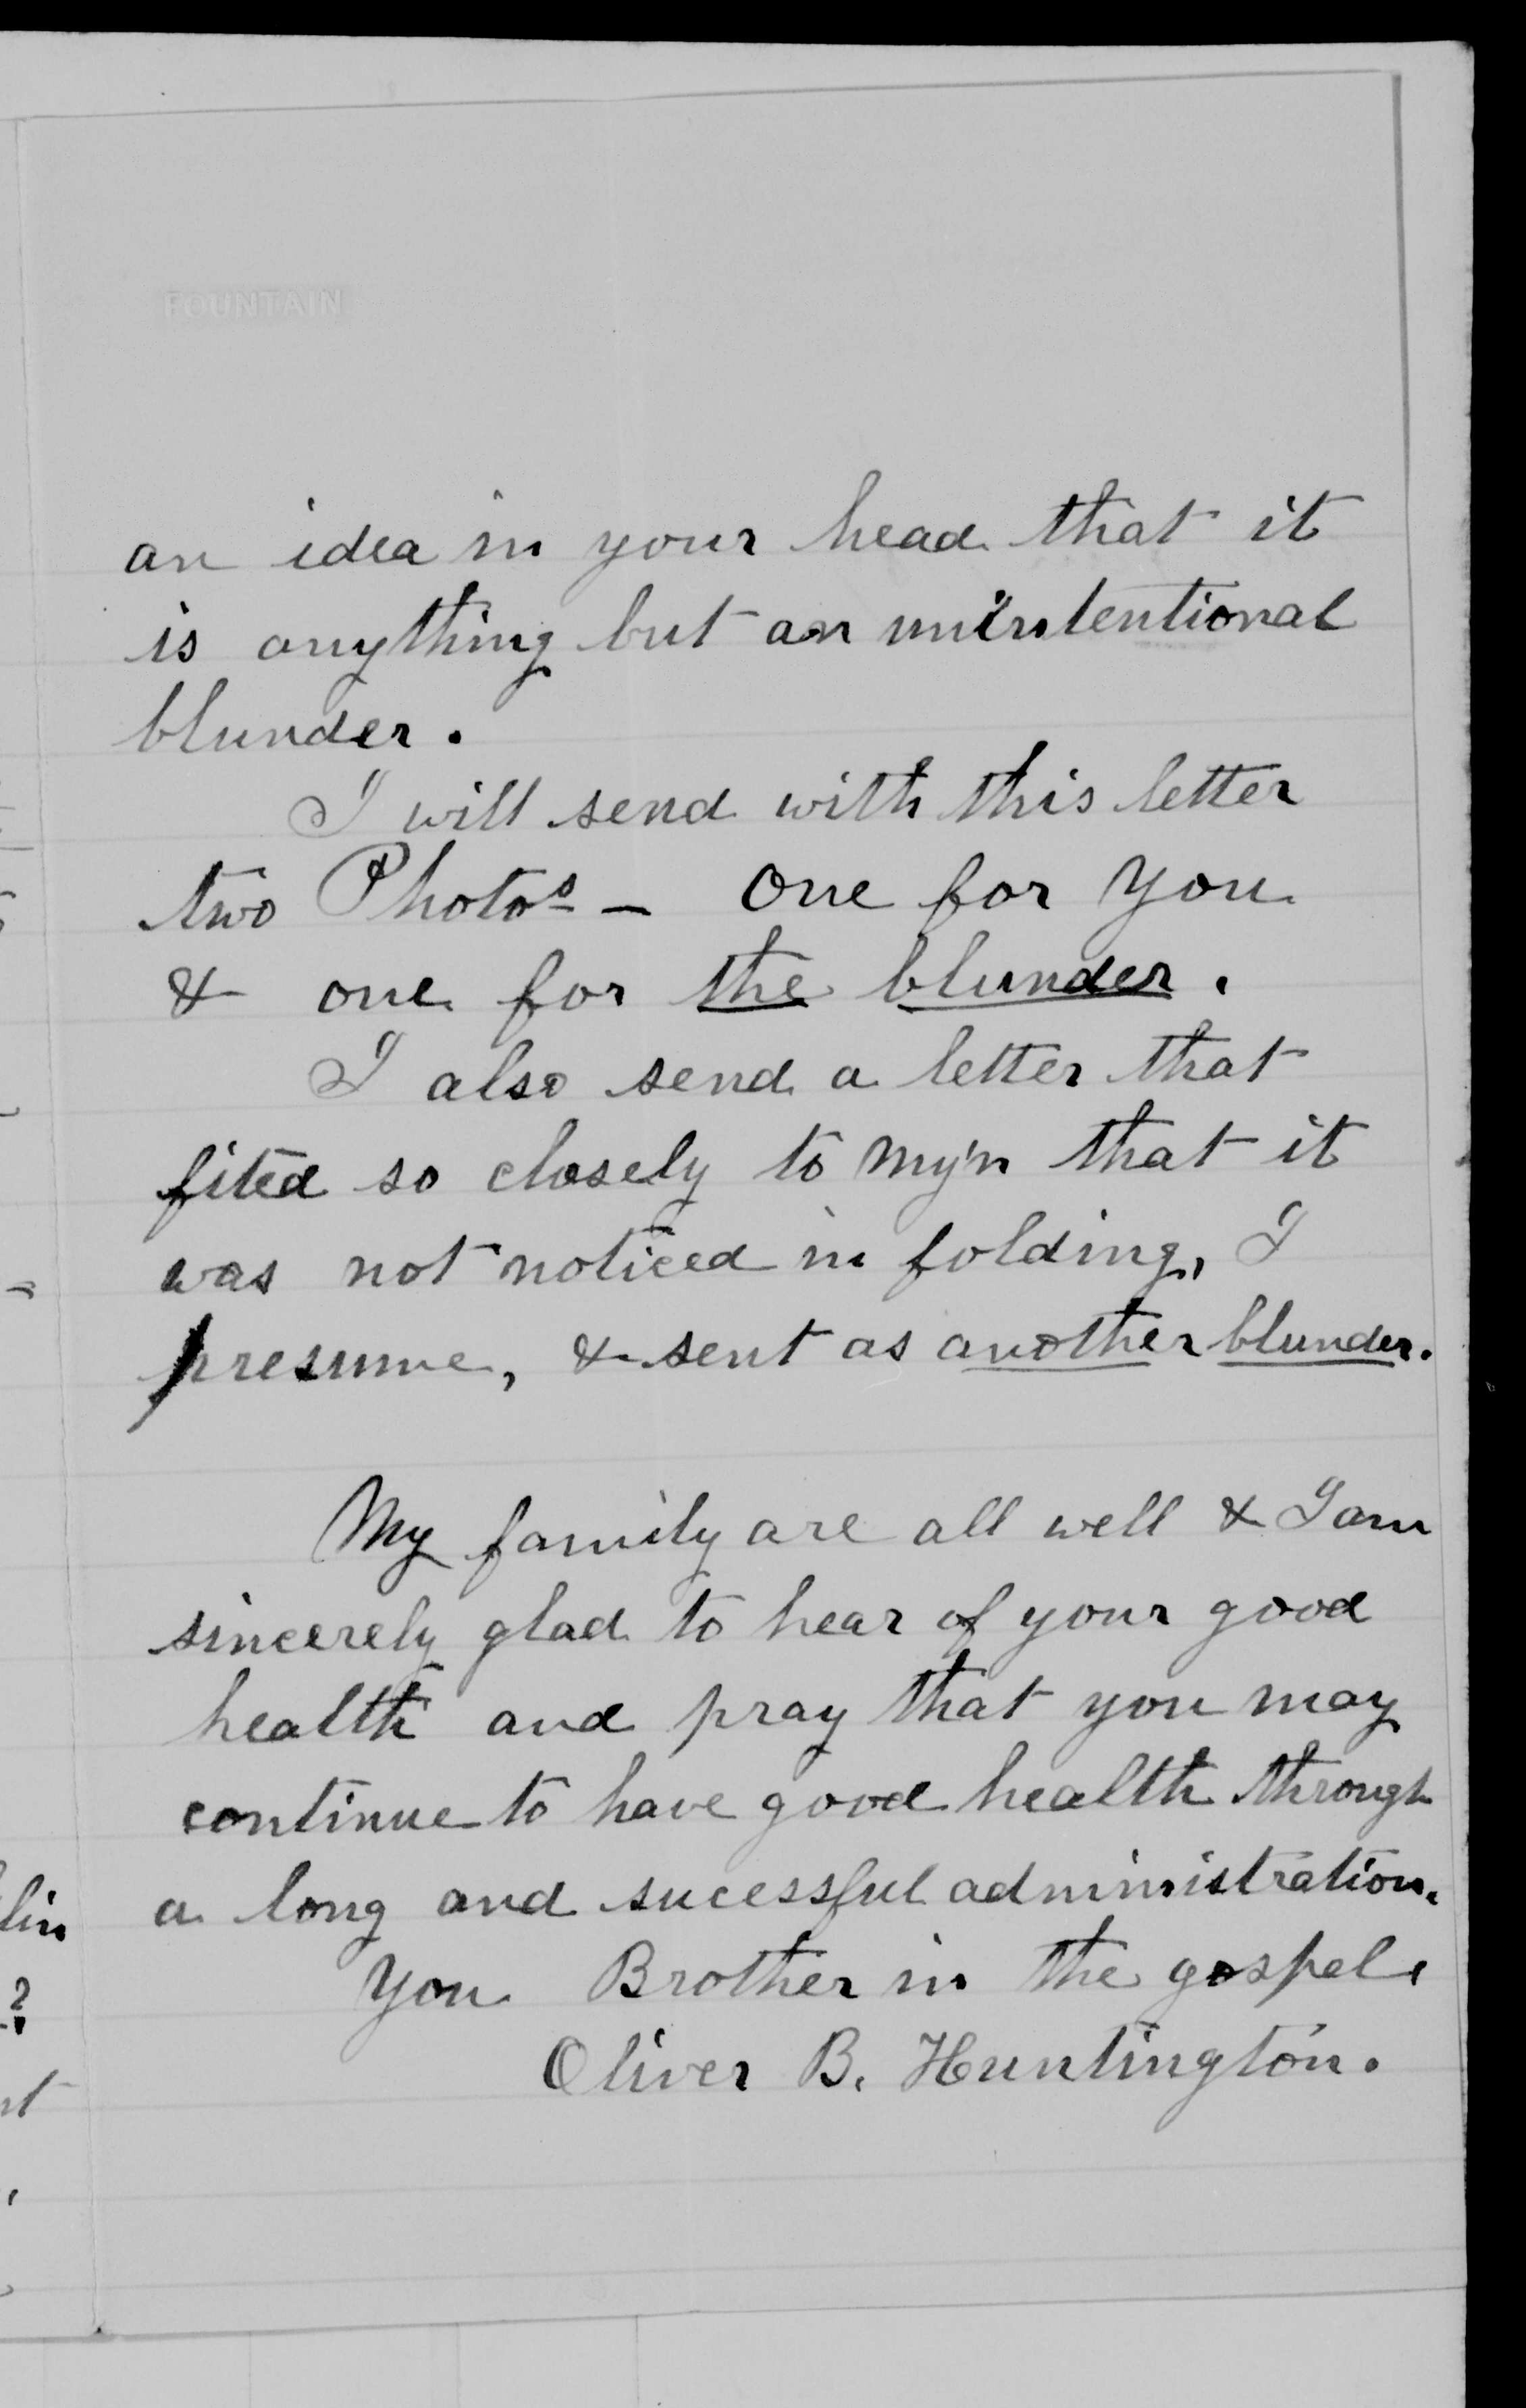 FOUNTAIN
an idea in your head that it
is anything but an unintentional
blunder.
I will send with this letter
two Photos — One for you
& one for the blunder.
I also send a letter that
fited so closely to my'n that it
was not noticed in folding, I
presume, & sent as another blunder.
My family are all well & I am
sincerely glad to hear of your good
health and pray that you may
continue to have good health through
a long and sucessful administration.
You Brother in the gospel.
Oliver B. Huntington.